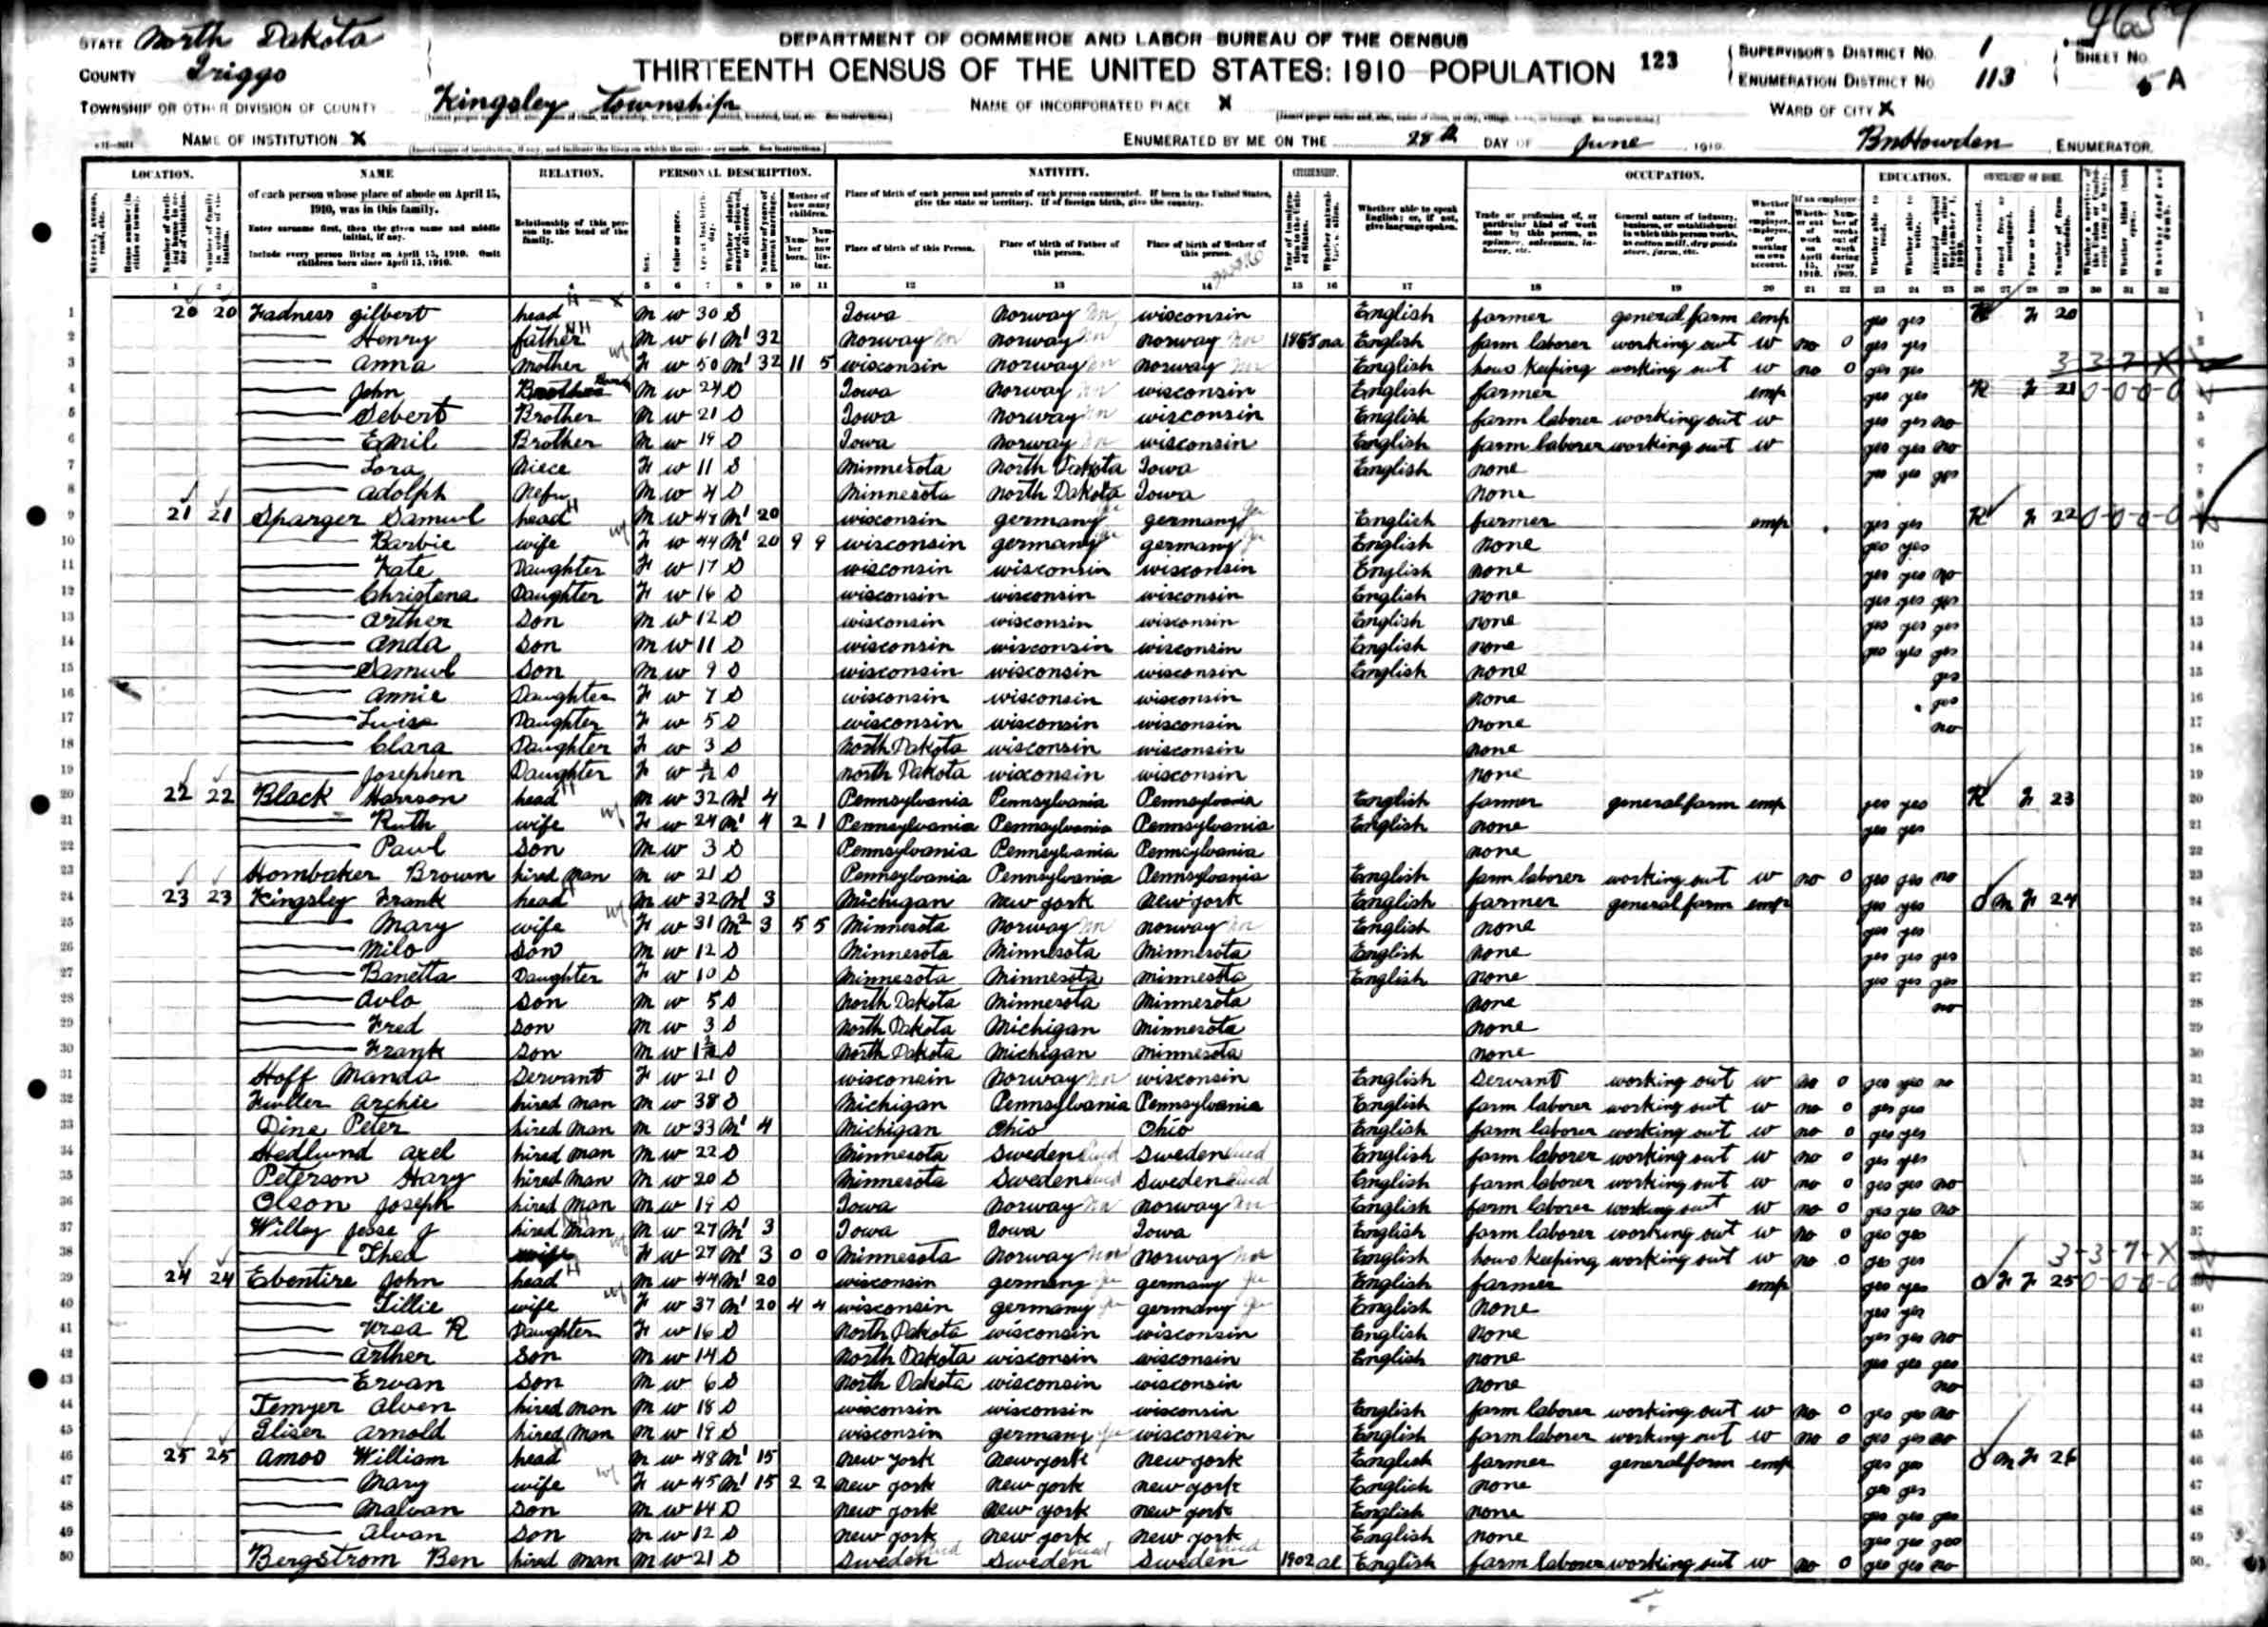 9659
STATE North Dakota
COUNTY Griggs
TOWNSHIP OR OTHER DIVISION OF COUNTY Kingsley Township
NAME OF INSTITUTION X
DEPARTMENT OF COMMERCE AND LABOR BUREAU OF THE CENSUS
THIRTEENTH CENSUS OF THE UNITED STATES: 1910 POPULATION 123
NAME OF INCORPORATED PLACE X
ENUMERATED BY ME ON THE 28th DAY OF June, 1910.
SUPERVISOR'S DISTRICT NO. 1
ENUMERATION DISTRICT NO 113
SHEET NO. 5 A
WARD OF CITY X
BmHowden, ENUMERATOR.
LOCATION. NAME RELATION. PERSONAL DESCRIPTION. NATIVITY. CITIZENSHIP. OCCUPATION. EDUCATION. OWNERSHIP OF HOME.
of each person whose place of abode on April 15, 1910, was in this family.
Enter surname first, then the given name and middle initial, if any.
Include every person living on April 15, 1910. Omit children born since April 15, 1910.
Relationship of this person to the head of the family.
Place of birth of each person and parents of each person enumerated. If born in the United States, give the state or territory. If of foreign birth, give the country.
Place of birth of this Person. Place of birth of Father of this person. Place of birth of Mother of this person.
Whether able to speak English; or, if not, give language spoken.
1 2 3 4 5 6 7 8 9 10 11 12 13 14 15 16 17 18 19 20 21 22 23 24 25 26 27 28 29 30 31 32
1 20 20 Fadness gilbert head m w 30 S Iowa norway wisconsin English farmer general farm emp yes yes R F 20
2 Henry father m w 61 M1 32 norway norway norway na English farm laborer working out w no 0 yes yes
3 anna mother F w 50 M1 32 11 5 wisconsin norway norway English hous keeping working out w no 0 yes yes 3-3-7-X
4 John Brother m w 24 S Iowa norway wisconsin English farmer emp yes yes R F 21 0-0-0-0
5 Sebert Brother m w 21 S Iowa norway wisconsin English farm laborer working out w yes yes no
6 Emil Brother m w 19 S Iowa norway wisconsin English farm laborer working out w yes yes no
7 Lora niece F w 11 S Minnesota north Dakota Iowa English none yes yes yes
8 adolph nefu m w 4 S Minnesota north Dakota Iowa none
9 21 21 Sparger Samuel head m w 47 M1 20 wisconsin germany germany English farmer emp yes yes R F 22 0-0-0-0
10 Barbie wife F w 44 M1 20 9 9 wisconsin germany germany English none yes yes
11 Kate Daughter F w 17 S wisconsin wisconsin wisconsin English none yes yes no
12 Christena Daughter F w 16 S wisconsin wisconsin wisconsin English none yes yes yes
13 arther son m w 12 S wisconsin wisconsin wisconsin English none yes yes yes
14 anda son m w 11 S wisconsin wisconsin wisconsin English none yes yes yes
15 Samuel son m w 9 S wisconsin wisconsin wisconsin English none yes
16 annie Daughter F w 7 S wisconsin wisconsin wisconsin none yes
17 Luisa Daughter F w 5 S wisconsin wisconsin wisconsin none no
18 Clara Daughter F w 3 S north Dakota wisconsin wisconsin none
19 Josephen Daughter F w S north Dakota wisconsin wisconsin none
20 22 22 Black Harrson head m w 32 M1 4 Pennsylvania Pennsylvania Pennsylvania English farmer general farm emp yes yes R F 23
21 Ruth wife F w 24 M1 4 2 1 Pennsylvania Pennsylvania Pennsylvania English none yes yes
22 Paul son m w 3 S Pennsylvania Pennsylvania Pennsylvania none
23 Hornbaker Brown hired man m w 21 S Pennsylvania Pennsylvania Pennsylvania English farm laborer working out w no 0 yes yes no
24 23 23 Kingsley Frank head m w 32 M1 3 Michigan new york new york English farmer general farm emp yes yes O M F 24
25 Mary wife F w 31 M2 3 5 5 Minnesota norway norway English none yes yes
26 Milo son m w 12 S Minnesota Minnesota Minnesota English none yes yes yes
27 Banetta Daughter F w 10 S Minnesota Minnesota minnesotta English none yes yes yes
28 avlo son m w 5 S north Dakota Minnesota Minnesota none no
29 Fred son m w 3 S north Dakota Michigan minnesota none
30 Frank son m w S north Dakota Michigan minnesota none
31 Hoff Manda Servant F w 21 S wisconsin norway wisconsin English Servant working out w no 0 yes yes no
32 Fuller archie hired man m w 38 S Michigan Pennsylvania Pennsylvania English farm laborer working out w no 0 yes yes
33 Dine Peter hired man m w 33 M1 4 Michigan Ohio Ohio English farm laborer working out w no 0 yes yes
34 Hedlund axel hired man m w 22 S Minnesota Sweden Sweden English farm laborer working out w no 0 yes yes
35 Peterson Hary hired man m w 20 S Minnesota Sweden Sweden English farm laborer working out w no 0 yes yes no
36 Olson Joseph hired man m w 19 S Iowa norway norway English farm laborer working out w no 0 yes yes no
37 Willey Jesse J hired man m w 27 M1 3 Iowa Iowa Iowa English farm laborer working out w no 0 yes yes
38 Thea wife F w 27 M1 3 0 0 Minnesota norway norway English hous keeping working out w no 0 yes yes 3-3-7-X
39 24 24 Ebentire John head m w 44 M1 20 wisconsin germany germany English farmer emp yes yes O F F 25 0-0-0-0
40 Tillie wife F w 37 M1 20 4 4 wisconsin germany germany English none yes yes
41 Ursa R Daughter F w 16 S north Dakota wisconsin wisconsin English none yes yes no
42 arther son m w 14 S north Dakota wisconsin wisconsin English none yes yes yes
43 Ervan son m w 6 S north Dakota wisconsin wisconsin none no
44 Temyer alven hired man m w 18 S wisconsin wisconsin wisconsin English farm laborer working out w no 0 yes yes no
45 Gliser arnold hired man m w 19 S wisconsin germany wisconsin English farm laborer working out w no 0 yes yes no
46 25 25 amos William head m w 48 M1 15 new york new york new york English farmer general farm emp yes yes O M F 26
47 Mary wife F w 45 M1 15 2 2 new york new york new york English none yes yes
48 Malvan son m w 14 S new york new york new york English none yes yes yes
49 alvan son m w 12 S new york new york new york English none yes yes yes
50 Bergstrom Ben hired man m w 21 S Sweden Sweden Sweden 1902 al English farm laborer working out w no 0 yes yes no